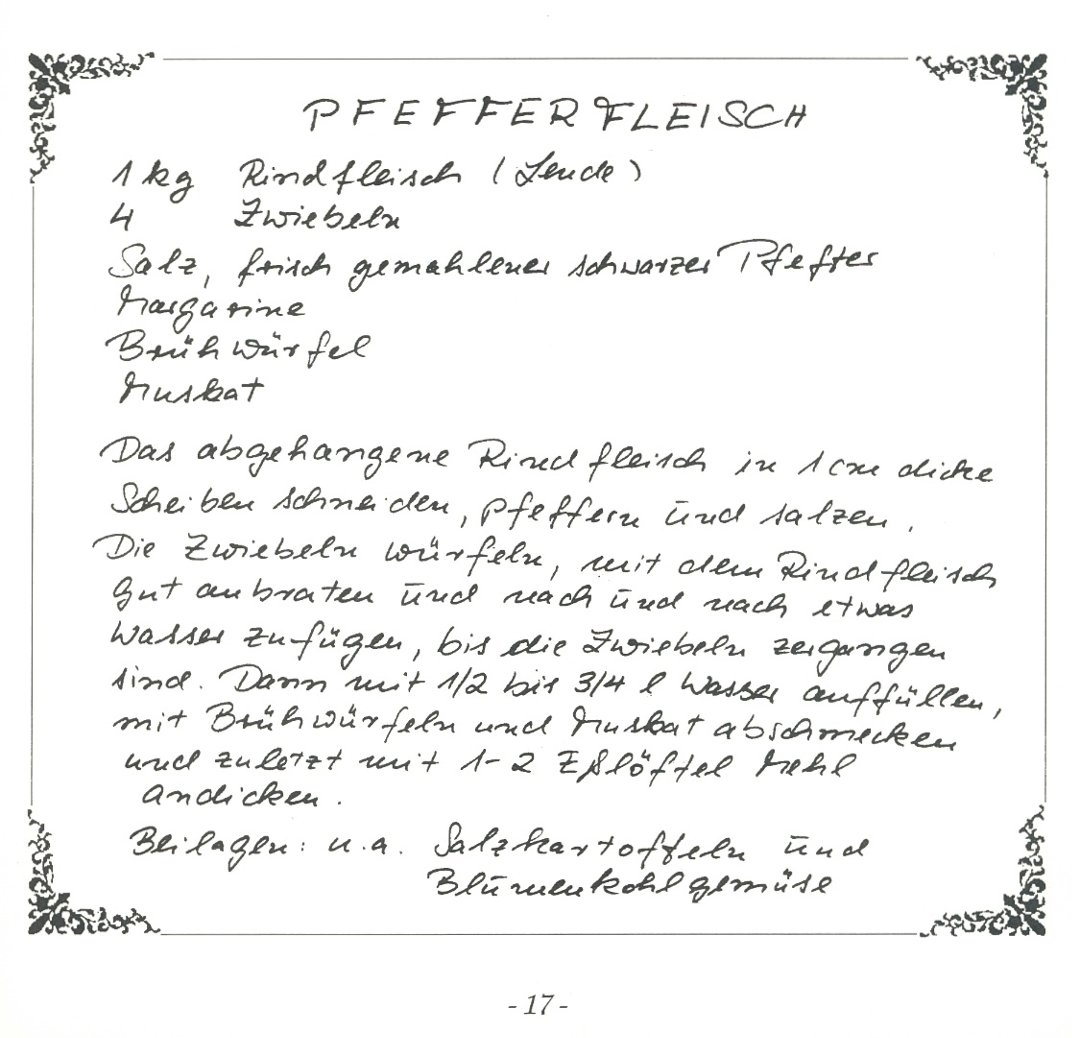 PFEFFERFLEISCH
1 kg Rindfleisch (Lende)
4 Zwiebeln
Salz, frisch gemahlener schwarzer Pfeffer
Margarine
Brühwürfel
Muskat
Das abgehangene Rindfleisch in 1 cm dicke
Scheiben schneiden, pfeffern und salzen.
Die Zwiebeln würfeln, mit dem Rindfleisch
gut anbraten und nach und nach etwas
Wasser zufügen, bis die Zwiebeln zergangen
sind. Dann mit 1/2 bis 3/4 l Wasser auffüllen,
mit Brühwürfeln und Muskat abschmecken
und zuletzt mit 1-2 Eßlöffel Mehl
andicken.
Beilagen: u.a. Salzkartoffeln und
Blumenkohlgemüse
- 17 -